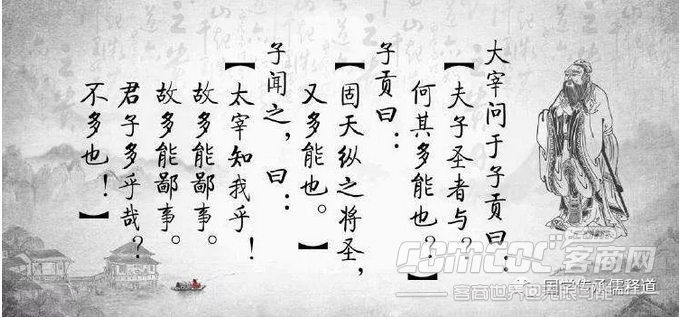 大宰问于子贡曰：
【夫子圣者与？
何其多能也？】
子贡曰：
【固天纵之将圣，
又多能也。】
子闻之，曰：
【太宰知我乎！
故多能鄙事。
故多能鄙事。
君子多乎哉？
不多也！】
comcoc 客商网
客商世界
国学传承儒释道